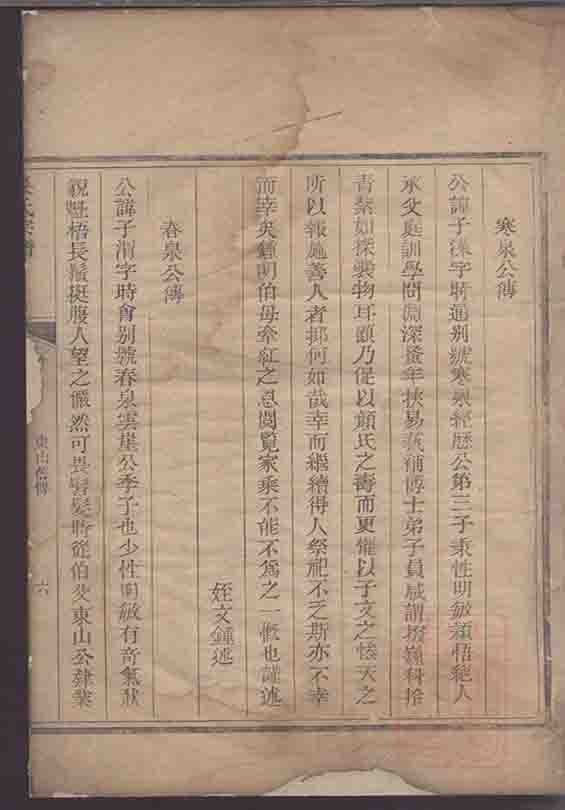 寒泉公傳
公諱子溁字時通别號寒泉經歷公第三子秉性明敏穎悟絕人
承父庭訓學問淵深蚤年挾易義補博士弟子員咸謂掇巍科拾
青紫如探囊物耳頭乃促以顏氏之壽而更催以子文之慘天之
所以報施善人者抑何如哉幸而繼續得人祭祀不乏斯亦不幸
而幸矣鍾明伯母牽紅之恩閲覽家乘不能不爲之一慨也謹述
姪文鍾述
春泉公傳
公諱子渭字時會别號春泉雲崖公季子也少性明敏有奇氣狀
貌魁梧長鬚挺腹人望之儼然可畏髫髮時從伯父東山公肄業
東山 傳
六